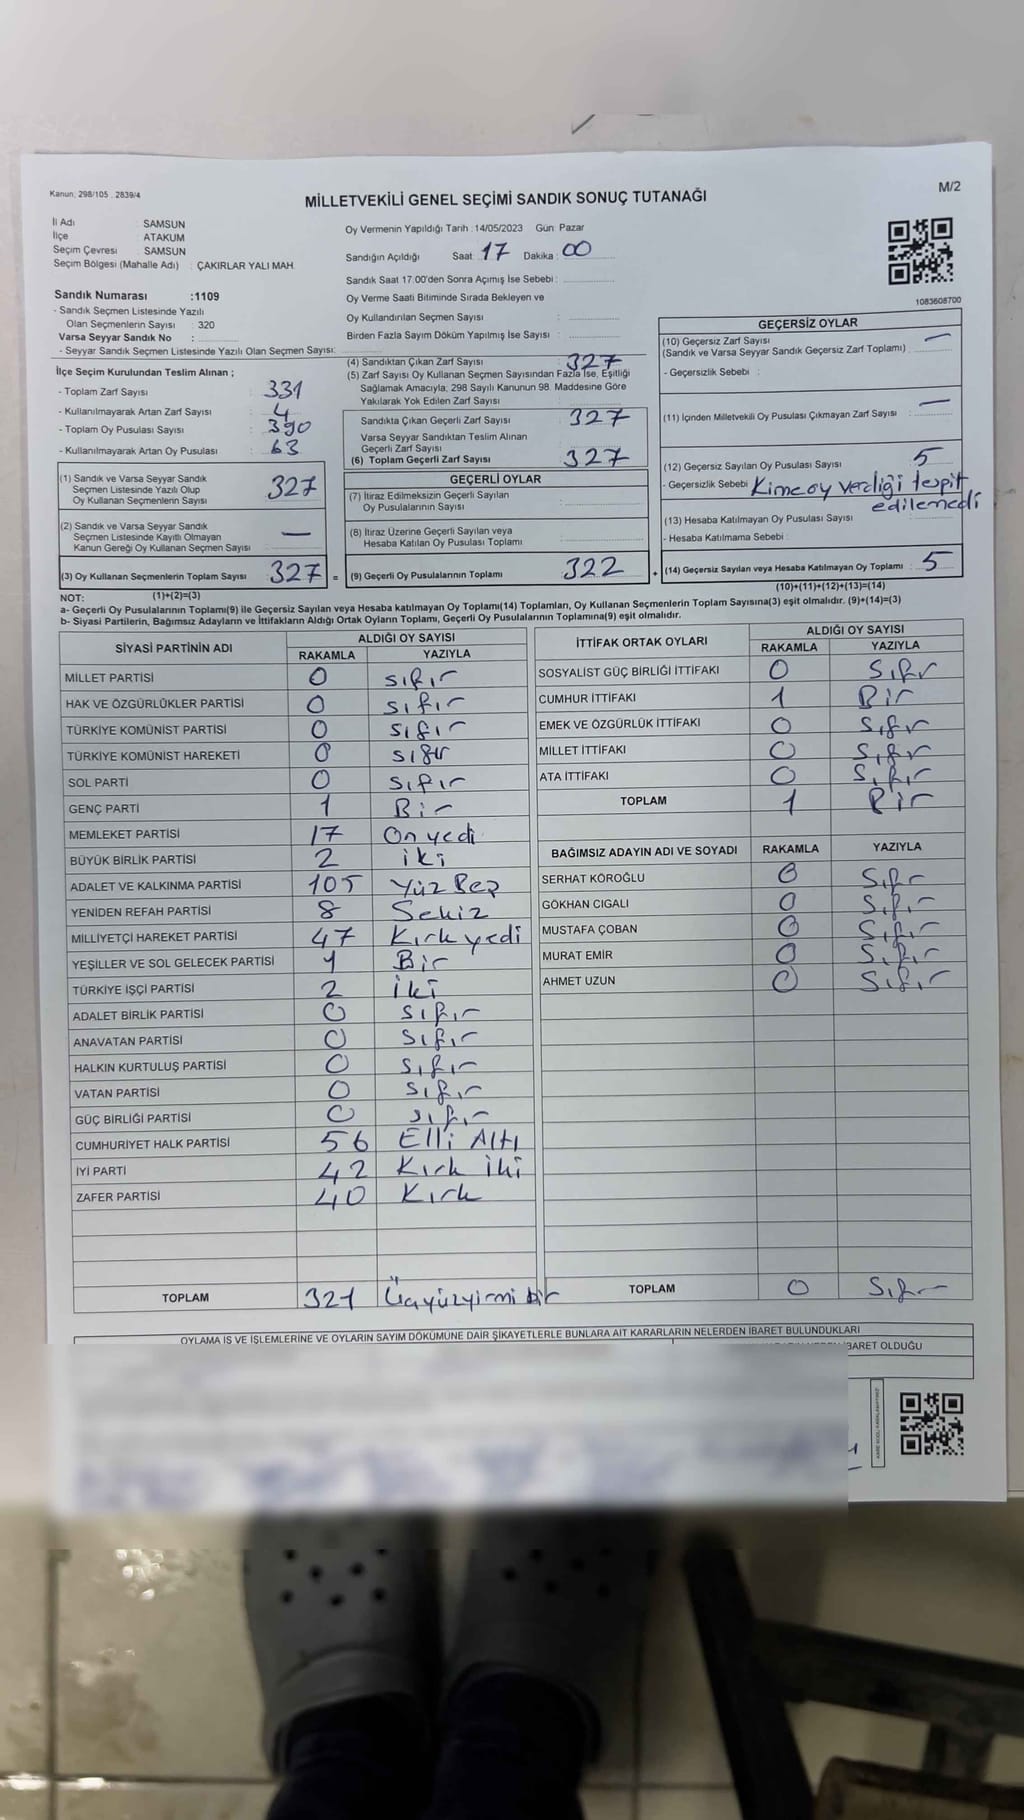 Kanun: 298/105 . 2839/4
MİLLETVEKİLİ GENEL SEÇİMİ SANDIK SONUÇ TUTANAĞI
M/2
İl Adı : SAMSUN
İlçe : ATAKUM
Seçim Çevresi : SAMSUN
Seçim Bölgesi (Mahalle Adı) : ÇAKIRLAR YALI MAH.
Sandık Numarası :1109
- Sandık Seçmen Listesinde Yazılı
Olan Seçmenlerin Sayısı : 320
Varsa Seyyar Sandık No :
- Seyyar Sandık Seçmen Listesinde Yazılı Olan Seçmen Sayısı:
İlçe Seçim Kurulundan Teslim Alınan ;
- Toplam Zarf Sayısı : 331
- Kullanılmayarak Artan Zarf Sayısı : 4
- Toplam Oy Pusulası Sayısı : 390
- Kullanılmayarak Artan Oy Pusulası : 63
(1) Sandık ve Varsa Seyyar Sandık
Seçmen Listesinde Yazılı Olup
Oy Kullanan Seçmenlerin Sayısı 327
(2) Sandık ve Varsa Seyyar Sandık
Seçmen Listesinde Kayıtlı Olmayan
Kanun Gereği Oy Kullanan Seçmen Sayısı —
(3) Oy Kullanan Seçmenlerin Toplam Sayısı 327 =
(1)+(2)=(3)
Oy Vermenin Yapıldığı Tarih : 14/05/2023 Gün: Pazar
Sandığın Açıldığı Saat : 17 Dakika : 00
Sandık Saat 17.00'den Sonra Açımış İse Sebebi :
Oy Verme Saati Bitiminde Sırada Bekleyen ve
Oy Kullandırılan Seçmen Sayısı :
Birden Fazla Sayım Döküm Yapılmış İse Sayısı :
(4) Sandıktan Çıkan Zarf Sayısı : 327
(5) Zarf Sayısı Oy Kullanan Seçmen Sayısından Fazla İse, Eşitliği
Sağlamak Amacıyla; 298 Sayılı Kanunun 98. Maddesine Göre
Yakılarak Yok Edilen Zarf Sayısı :
Sandıkta Çıkan Geçerli Zarf Sayısı : 327
Varsa Seyyar Sandıktan Teslim Alınan
Geçerli Zarf Sayısı
(6) Toplam Geçerli Zarf Sayısı : 327
GEÇERLİ OYLAR
(7) İtiraz Edilmeksizin Geçerli Sayılan
Oy Pusulalarının Sayısı :
(8) İtiraz Üzerine Geçerli Sayılan veya
Hesaba Katılan Oy Pusulası Toplamı :
(9) Geçerli Oy Pusulalarının Toplamı 322 +
1083608700
GEÇERSİZ OYLAR
(10) Geçersiz Zarf Sayısı : —
(Sandık ve Varsa Seyyar Sandık Geçersiz Zarf Toplamı)
- Geçersizlik Sebebi :
(11) İçinden Milletvekili Oy Pusulası Çıkmayan Zarf Sayısı : —
(12) Geçersiz Sayılan Oy Pusulası Sayısı : 5
- Geçersizlik Sebebi : Kime oy verdiği tespit
edilemedi
(13) Hesaba Katılmayan Oy Pusulası Sayısı
- Hesaba Katılmama Sebebi :
(14) Geçersiz Sayılan veya Hesaba Katılmayan Oy Toplamı : 5
(10)+(11)+(12)+(13)=(14)
NOT:
a- Geçerli Oy Pusulalarının Toplamı(9) ile Geçersiz Sayılan veya Hesaba katılmayan Oy Toplamı(14) Toplamları, Oy Kullanan Seçmenlerin Toplam Sayısına(3) eşit olmalıdır. (9)+(14)=(3)
b- Siyasi Partilerin, Bağımsız Adayların ve İttifakların Aldığı Ortak Oyların Toplamı, Geçerli Oy Pusulalarının Toplamına(9) eşit olmalıdır.
SİYASİ PARTİNİN ADI ALDIĞI OY SAYISI
RAKAMLA YAZIYLA
MİLLET PARTİSİ 0 sıfır
HAK VE ÖZGÜRLÜKLER PARTİSİ 0 sıfır
TÜRKİYE KOMÜNİST PARTİSİ 0 sıfır
TÜRKİYE KOMÜNİST HAREKETİ 0 sıfır
SOL PARTİ 0 sıfır
GENÇ PARTİ 1 Bir
MEMLEKET PARTİSİ 17 On yedi
BÜYÜK BİRLİK PARTİSİ 2 iki
ADALET VE KALKINMA PARTİSİ 105 Yüz Beş
YENİDEN REFAH PARTİSİ 8 Sekiz
MİLLİYETÇİ HAREKET PARTİSİ 47 Kırk yedi
YEŞİLLER VE SOL GELECEK PARTİSİ 1 Bir
TÜRKİYE İŞÇİ PARTİSİ 2 İki
ADALET BİRLİK PARTİSİ 0 sıfır
ANAVATAN PARTİSİ 0 sıfır
HALKIN KURTULUŞ PARTİSİ 0 sıfır
VATAN PARTİSİ 0 sıfır
GÜÇ BİRLİĞİ PARTİSİ 0 sıfır
CUMHURİYET HALK PARTİSİ 56 Elli Altı
İYİ PARTİ 42 Kırk iki
ZAFER PARTİSİ 40 Kırk
TOPLAM 321 Üçyüzyirmi bir
İTTİFAK ORTAK OYLARI ALDIĞI OY SAYISI
RAKAMLA YAZIYLA
SOSYALİST GÜÇ BİRLİĞİ İTTİFAKI 0 Sıfır
CUMHUR İTTİFAKI 1 Bir
EMEK VE ÖZGÜRLÜK İTTİFAKI 0 Sıfır
MİLLET İTTİFAKI 0 Sıfır
ATA İTTİFAKI 0 Sıfır
TOPLAM 1 Bir
BAĞIMSIZ ADAYIN ADI VE SOYADI RAKAMLA YAZIYLA
SERHAT KÖROĞLU 0 Sıfır
GÖKHAN CIGALI 0 Sıfır
MUSTAFA ÇOBAN 0 Sıfır
MURAT EMİR 0 Sıfır
AHMET UZUN 0 Sıfır
TOPLAM 0 Sıfır
OYLAMA İŞ VE İŞLEMLERİNE VE OYLARIN SAYIM DÖKÜMÜNE DAİR ŞİKAYETLERLE BUNLARA AİT KARARLARIN NELERDEN İBARET BULUNDUKLARI
İBARET OLDUĞU